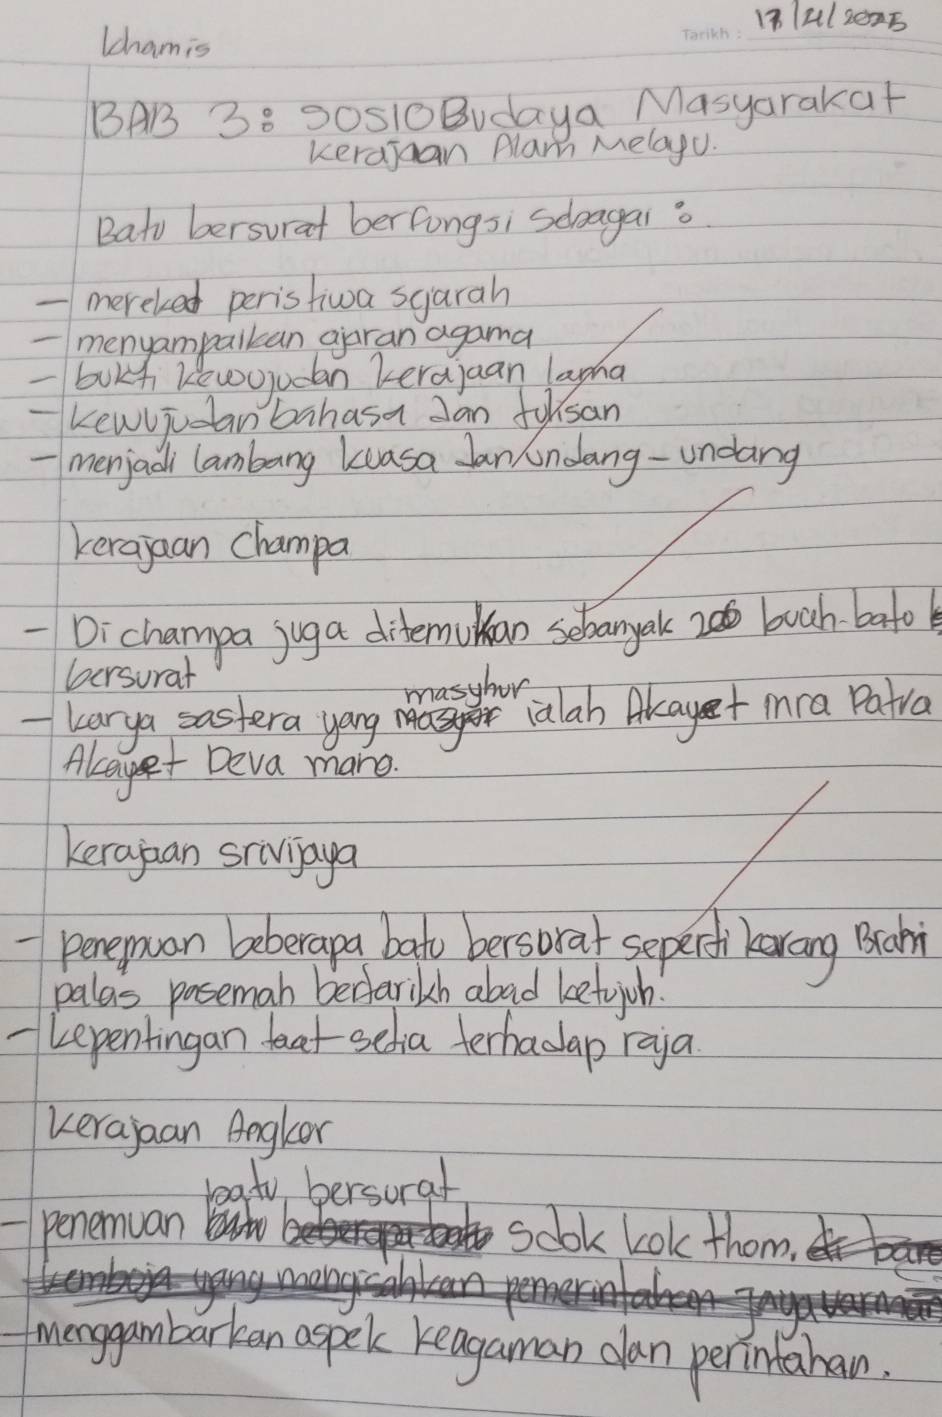 Khamis
Tarikh : 17/4/2025
BAB 3: SOSIOBudaya Masyarakat
Kerajaan Alam Melayu.
Batu bersurat berfungsi sebagai :
- merekod peristiwa sejarah
- menyampaikan ajaran agama
- bukti kewujudan kerajaan lama
- kewujudan bahasa dan tulisan
- menjadi lambang kuasa dan undang-undang
kerajaan Champa
- Di champa juga ditemukan sebanyak 200 buah batu
bersurat
masyhur
- karya sastera yang ialah Akayet mra Patra
Akayet Deva mano.
kerajaan srivijaya
- penemuan beberapa batu bersurat seperti karang Brahi
palas pasemah bertarikh abad ketujuh.
- kepentingan taat setia terhadap raja.
kerajaan Angkor
batu bersurat
- penemuan Sdok kok thom.
kemboja yang mengisahkan pemerintahan Jayavarman
- menggambarkan aspek keagaman dan perintahan.